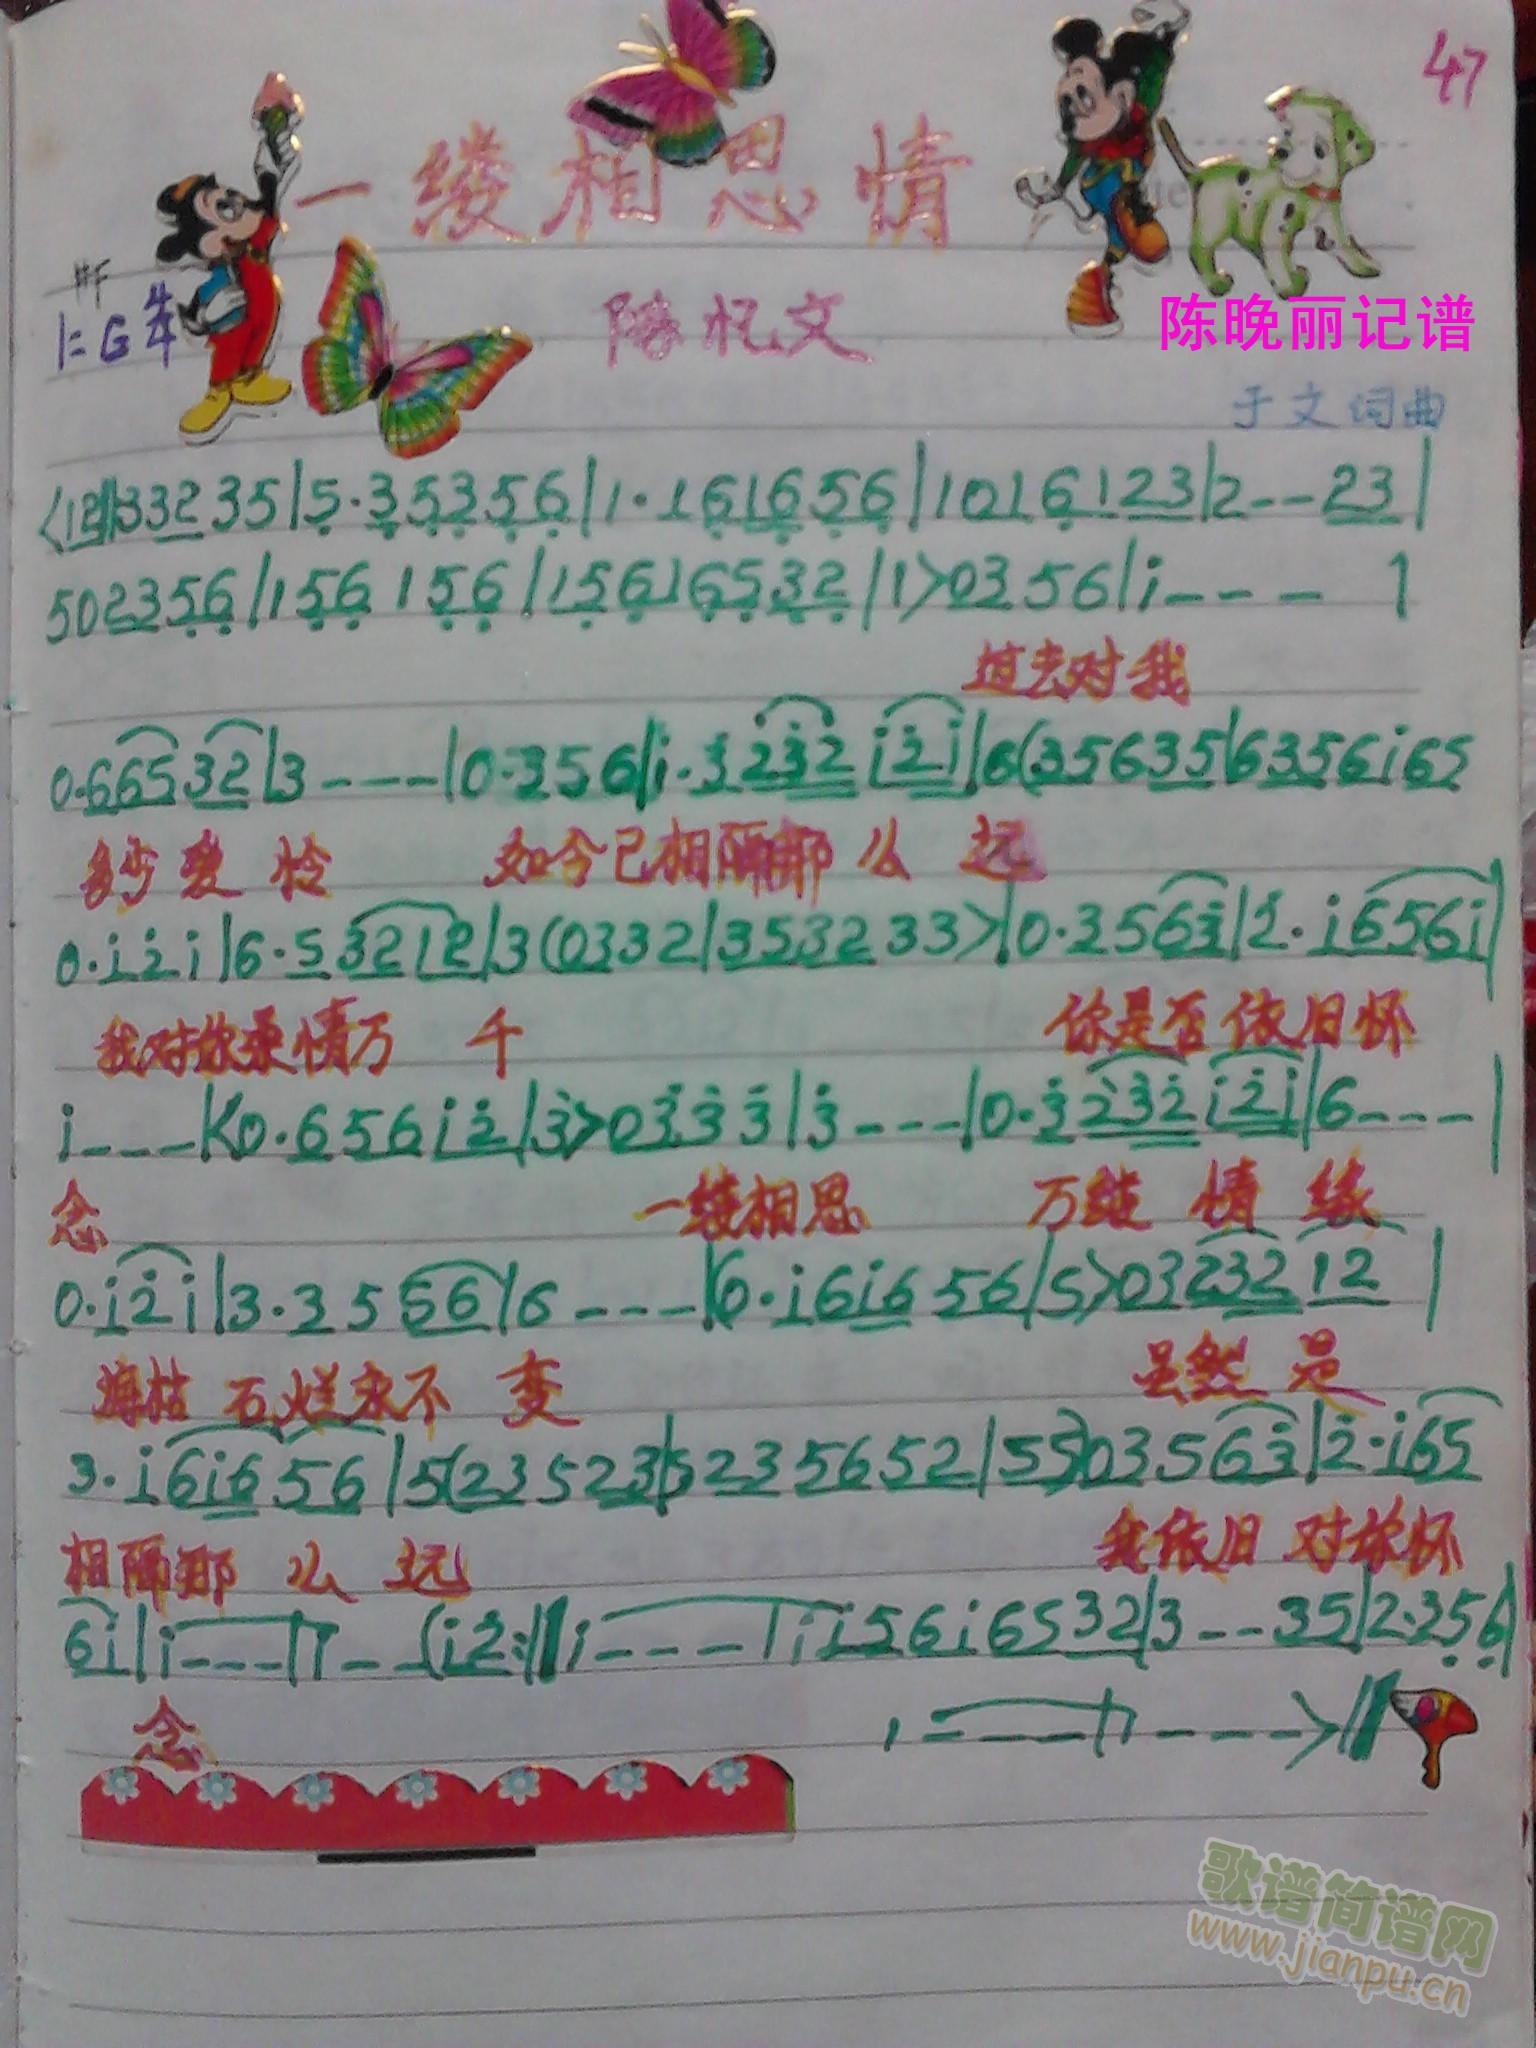 47
一缕相思情
#F
1=G 4/4
陈忆文
陈晚丽记谱
于文词曲
<12‖332 35|5·35356|1·161656|1016123|2--23|
502356|156 156|156165 32|1>0356|i---|
过去对我
0·66532|3---|0·356|i·3232i2i|6(356535|6356i65
多少爱怜 如今已相隔那么远
0·i2i|6·53212|3(0332|3532 33>|0·3563|2·i656i|
我对你柔情万千 你是否依旧怀
i---|<0·656i2|3>0333|3---|0·3232i2i|6---|
念 一缕相思 万缕情缘
0·i2i|3·3556|6---|6·i6i656|5>0323212|
海枯石烂永不变 虽然是
3·i6i656|5(23523|5235652|55)03563|2·i65
相隔那么远 我依旧对你怀
6i|i---|i--(i2:‖i---|ii56i6532|3--35|2·356|
念
1---|1--->‖
歌谱简谱网
www.jianpu.cn